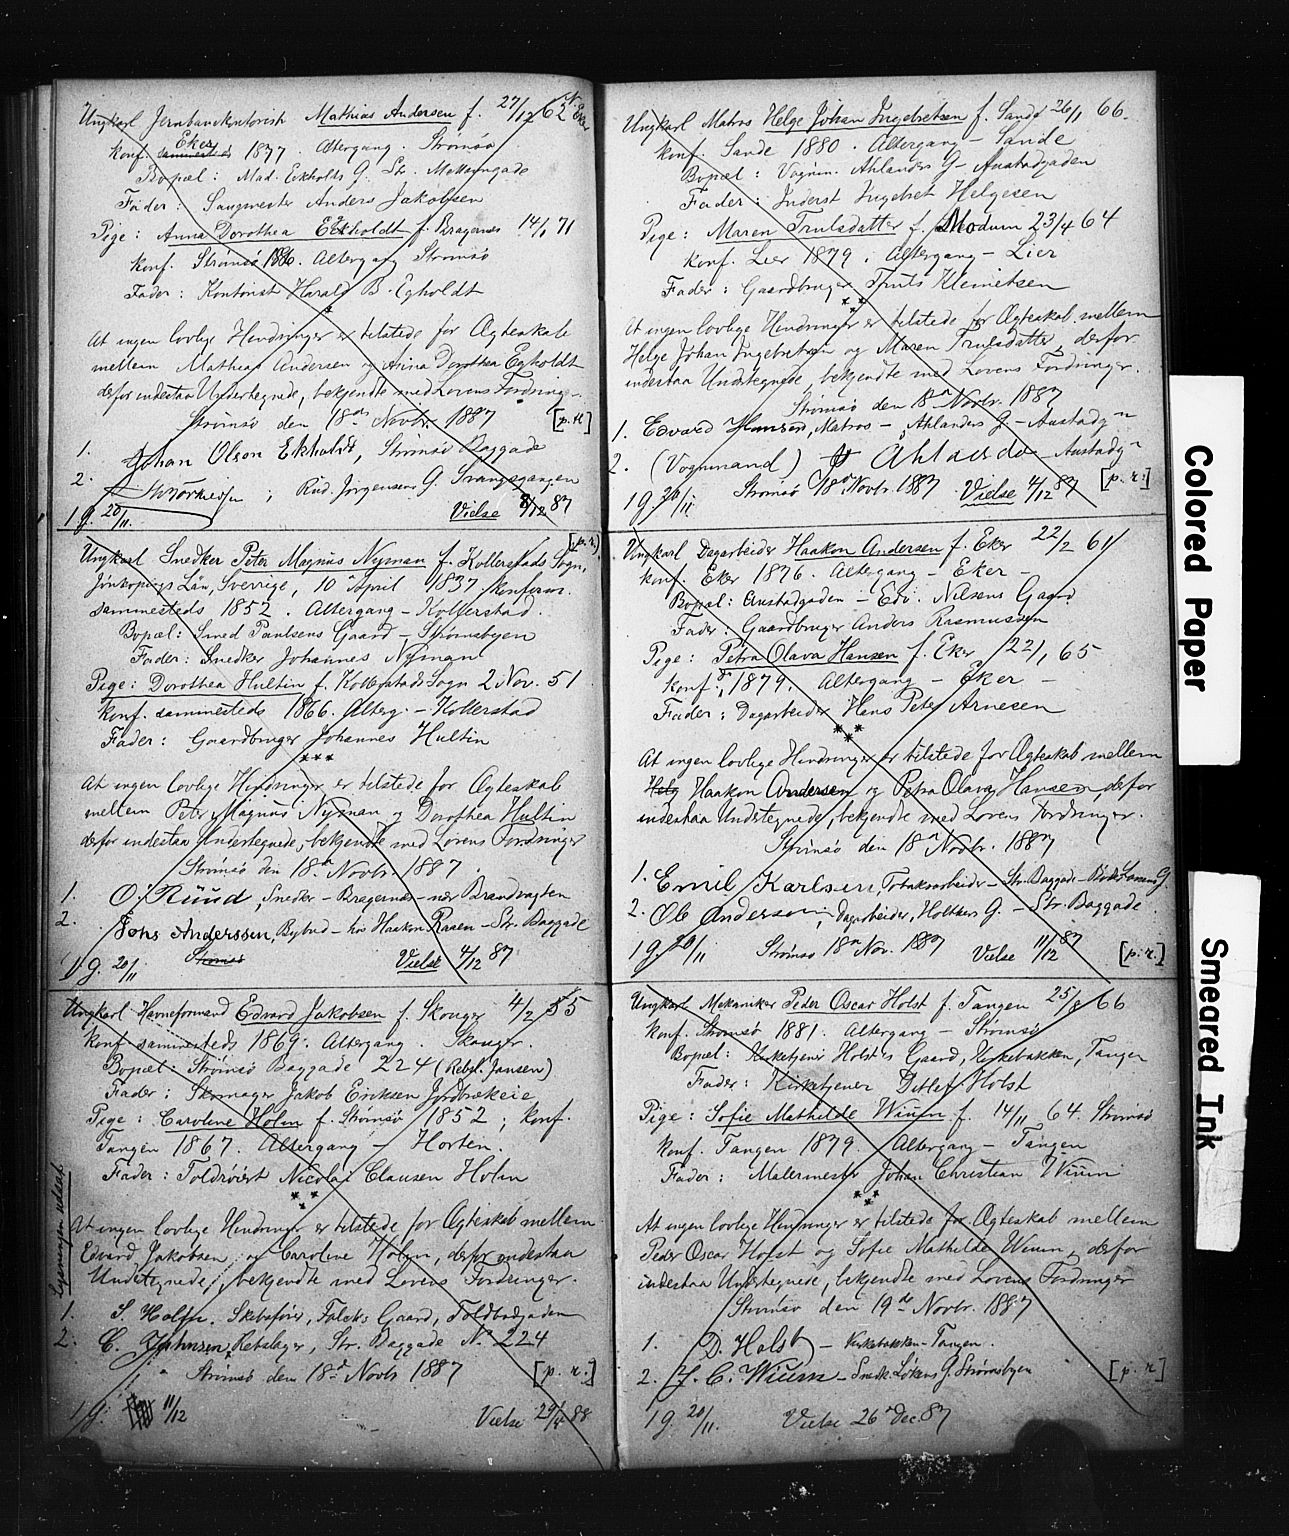 Ungkarl Jernbanekontorist Mathias Andersen f. 27/12 62 N. Eker
Konf. Eker sammesteds 1877. Altergang. Strømsø
Bopæl: Mad. Eckholts G. Str.
Fader: Saugmester Anders Jakobsen
Pige: Anna Dorothea Eckholdt f. Bragernes 14/1 71
Konf. Strømsø 1886. Altergang Strømsø
Fader: Kontorist Harald B. Egholdt
At ingen lovlige Hindringer er tilstede for Ægteskab
mellem Mathias Andersen og Anna Dorothea Egholdt
derfor indestaa Undertegnede, bekjendte med Lovens Fordring-
Strømsø den 18de Novbr. 1887 [p.r.]
1. Johan Olson Ekholdt, Strømsø Baggade
2. Rud. Jørgensens G. Svangsgangen
1 g. 20/11. Vielse 8/12 87
[p.r.]
Ungkarl Snedker Peter Magnus Nyman f. Kollerstads Sogn,
Jönköpings Län, Sverrige, 10 April 1837 Konferm.
sammesteds 1852. Altergang - Kollerstad.
Bopæl: Smed Paulsens Gaard - Strømsbyen
Fader: Snedker Johannes Nyman
Pige: Dorothea Hultin f. Kollerstads Sogn 2 Nov. 51
Konf. sammesteds 1866. Alterg. - Kollerstad
Fader: Gaardbruger Johannes Hultin
At ingen lovlige Hindringer er tilstede for Ægteskab
mellem Peter Magnus Nyman og Dorothea Hultin
derfor indestaa Undertegnede, bekjendte med Lovens Fordringer
Strømsø den 18de Novbr. 1887.
1. O. Ruud, Snedker - Bragernes - nær Brandvagten
2. Jons Anderssen, Bybud - hos Haakon Raaen - Str. Baggade
Strømsø
1 g. 20/11 Vielse 4/12 87
Ungkarl Havneformand Edvard Jakobsen f. Skouger 4/2 55
Konf sammesteds 1869. Altergang. Skouger.
Bopæl: Strømsø Baggade 224 (Rebsl. Jansen)
Fader: Skomager Jakob Eriksen Jordbrækeie
Pige: Caroline Holm f. Strømsø 1852; Konf.
Tangen 1867. Altergang - Horten.
Fader: Toldrorer Nicolai Clausen Holm
Lysningen udsat.
At ingen lovlige Hindringer er tilstede for Ægteskab mellem
Edvard Jakobsen og Caroline Holm, derfor indestaa
Undertegnede, bekjendte med Lovens Fordringer.
1. S. Holm. Skibsfører, Falcks Gaard, Toldbodgaden
2. C. Johnsen, Rebslager, Str. Baggade No 224
Strømsø den 18de Novbr 1887 [p. r.]
1 g. 11/12 Vielse 29/4 88
Ungkarl Matros Helge Johan Ingebretsen f. Sande 26/1 66.
Konf. Sande 1880. Altergang - Sande
Bopæl: Vognm. Ahlanders G - Austadgaden
Fader: Inderst Ingebret Helgesen
Pige: Maren Trulsdatter f. Modum 23/4 64
Konf. Lier 1879. Altergang - Lier
Fader: Gaardbruger Truls Klemetsen
At ingen lovlige Hindringer er tilstede for Ægteskab mellem
Helge Johan Ingebretsen og Maren Trulsdatter, derfor
indestaa Undertegnede, bekjendte med Lovens Fordringer.
Strømsø den 18de Novbr. 1887
1. Edvard Hansen, Matros - Ahlanders G - Austadgn
2. (Vognmand) Ahlander Austadgn
Strømsø 18de Novbr. 1887 Vielse 4/12 87 [p. r.]
1 g. 20/11
Ungkarl Dagarbeider Haakon Andersen f. Eker 22/2 61
Konf. Eker 1876. Altergang - Eker -
Bopæl: Austadgaden - Edv. Nilsens Gaard
Fader: Gaardbruger Anders Rasmussen
Pige: Petra Olava Hansen f. Eker 22/1 65
Konf. 1879. Altergang - Eker -
Fader: Dagarbeider Hans Peter Arnesen
At ingen lovlige Hindringer er tilstede for Ægteskab mellem
Helg Haakon Andersen og Petra Olava Hansen, derfor
indestaa Undertegnede, bekjendte med Lovens Fordringer.
Strømsø den 18de Novbr. 1887
1. Emil Karlsen, Tobaksarbeider - Str. Baggade
2. Ole Andersen, Dagarbeider, Holtkers G. - Str. Baggade
1 g. 20/11 Strømsø 18de Nov. 1887 Vielse 11/12 87 [p. r.]
Ungkarl Mekaniker Peder Oscar Holst f. Tangen 25/8 66
Konf. Strømsø 1881. Altergang - Strømsø
Bopæl: Kirketjener Holst's Gaard, Kirkebakken, Tangen
Fader: Kirketjener Ditlef Holst
Pige: Sofie Mathilde Wium f. 14/11 64. Strømsø
Konf. Tangen 1879. Altergang - Tangen
Fader: Malermester Johan Christian Wium
At ingen lovlige Hindringer er tilstede for Ægteskab mellem
Peder Oscar Holst og Sofie Mathilde Wium, derfor
indestaa Undertegnede, bekjendte med Lovens Fordringer
Strømsø den 19de Novbr. 1887
1. D. Holst - Kirkebakken - Tangen.
2. J. C. Wium - Snedk. Løkens G. Strømsbyen [p. r.]
1 g. 20/11. Vielse 26de Dec. 87
Colored Paper
Smeared Ink